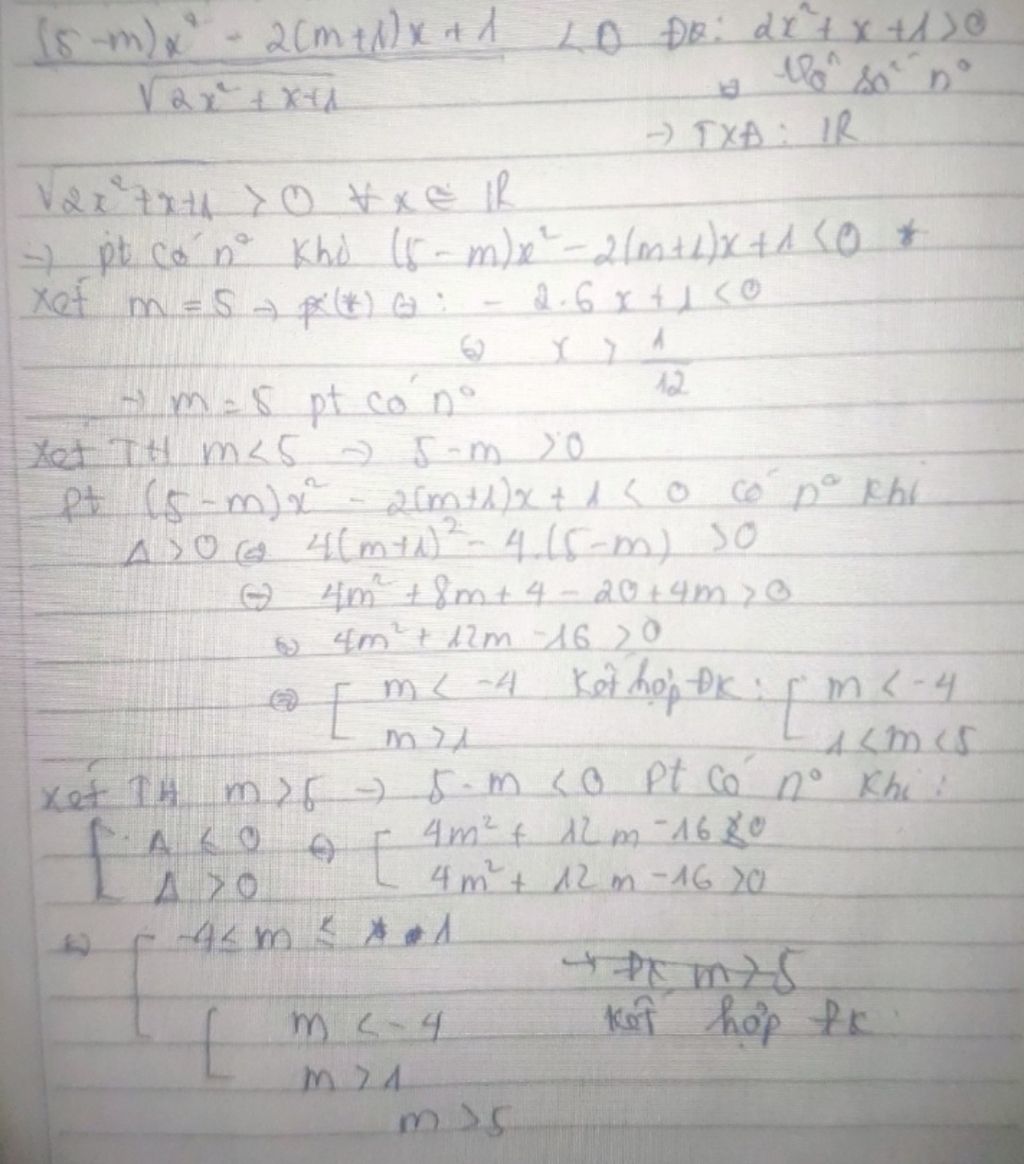 (5-m)x² - 2(m+1)x + 1 < 0 ĐK: 2x² + x + 1 > 0
√2x² + x+1 ⇔ số n°
→ TXĐ: IR
√2x²+x+1 > 0 ∀ x ∈ IR
→ pt có n° khi (5-m)x² - 2(m+1)x + 1 < 0 *
xét m = 5 → (*) ⇔: - 2.6x + 1 < 0
⇔ x > 1/12
→ m = 5 pt có n°
xét TH m < 5 → 5-m > 0
pt (5-m)x² - 2(m+1)x + 1 < 0 có n° khi
Δ > 0 ⇔ 4(m+1)² - 4.(5-m) > 0
⇔ 4m² + 8m + 4 - 20 + 4m > 0
⇔ 4m² + 12m - 16 > 0
⇔ [ m < -4 Kết hợp ĐK: [ m < -4
m > 1 1 < m < 5
xét TH m > 5 → 5-m < 0 pt có n° khi:
[ Δ ≤ 0 ⇔ [ 4m² + 12m - 16 ≤ 0
Δ > 0 4m² + 12m - 16 > 0
⇔ [ -4 ≤ m ≤ 1
→ ĐK m > 5
[ m < -4 Kết hợp ĐK
m > 1
m > 5